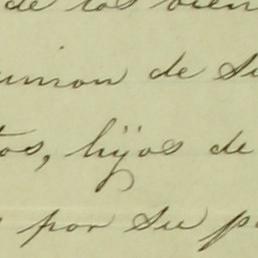 de los bien
union de su
tos, hijos de
por su p